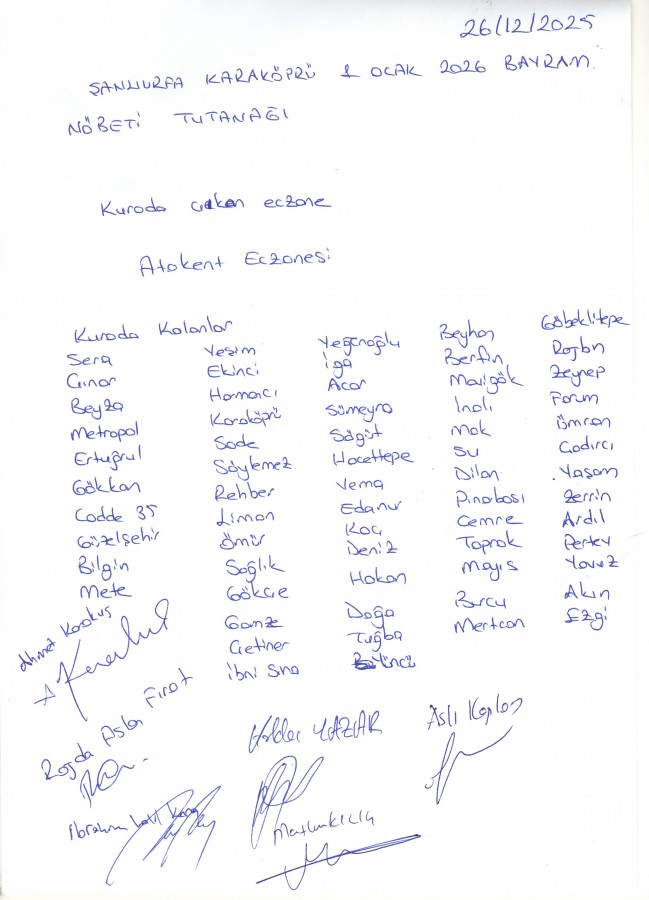 26/12/2025
ŞANLIURFA KARAKÖPRÜ 1 OCAK 2026 BAYRAM
NÖBETİ TUTANAĞI
Kurada çıkan eczane
Atakent Eczanesi
Kurada Kalanlar
Sera
Çınar
Beyza
Metropol
Ertuğrul
Gökkan
Cadde 35
Güzelşehir
Bilgin
Mete
Yeşim
Ekinci
Hamarcı
Karaköprü
Sade
Söylemez
Rehber
Liman
Ömür
Sağlık
Gökçe
Gamze
Çetiner
İbni Sina
Yeğenoğlu
Acar
Sümeyra
Söğüt
Hacettepe
Vema
Edanur
Koç
Deniz
Hakan
Doğa
Tuğba
İnci
Beyhan
Berfin
Mavigök
İnalı
Mak
Su
Dilan
Pınarbaşı
Cemre
Toprak
Mayıs
Burcu
Mertcan
Göbeklitepe
Rojbin
Zeynep
Forum
Ümran
Çadırcı
Yaşam
Zerrin
Ardıl
Pertev
Yavuz
Akın
Ezgi
Ahmet Karakuş
Rojda Aslan Fırat
YAZAR
Aslı Kaplan
İbrahim Halil